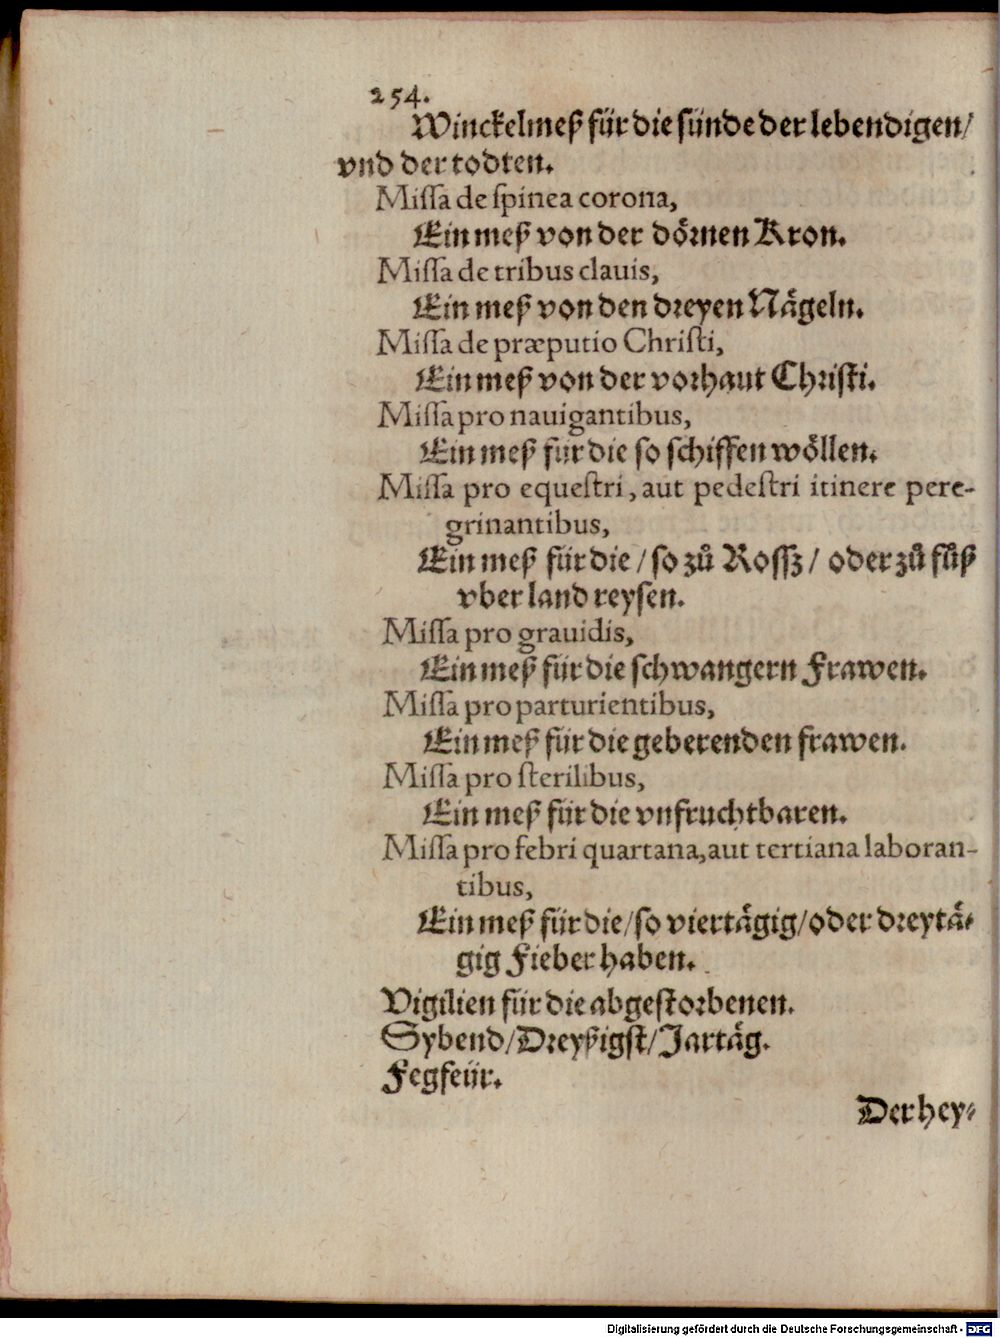 254.
Winckelmeß für die sünde der lebendigen/
vnd der todten.
Missa de spinea corona,
Ein meß von der dörnen Kron.
Missa de tribus clauis,
Ein meß von den dreyen Nägeln.
Missa de præputio Christi,
Ein meß von der vorhaut Christi.
Missa pro nauigantibus,
Ein meß für die so schiffen wöllen.
Missa pro equestri, aut pedestri itinere pere-
grinantibus,
Ein meß für die / so zů Rossz / oder zů fůß
vber land reysen.
Missa pro grauidis,
Ein meß für die schwangern Frawen.
Missa pro parturientibus,
Ein meß für die geberenden frawen.
Missa pro sterilibus,
Ein meß für die vnfruchtbaren.
Missa pro febri quartana, aut tertiana laboran-
tibus,
Ein meß für die/so viertägig/oder dreytä-
gig Fieber haben.
Vigilien für die abgestorbenen.
Sybend/Dreyßigst/Jartäg.
Fegfeür.
Der hey-
Digitalisierung gefördert durch die Deutsche Forschungsgemeinschaft - DFG